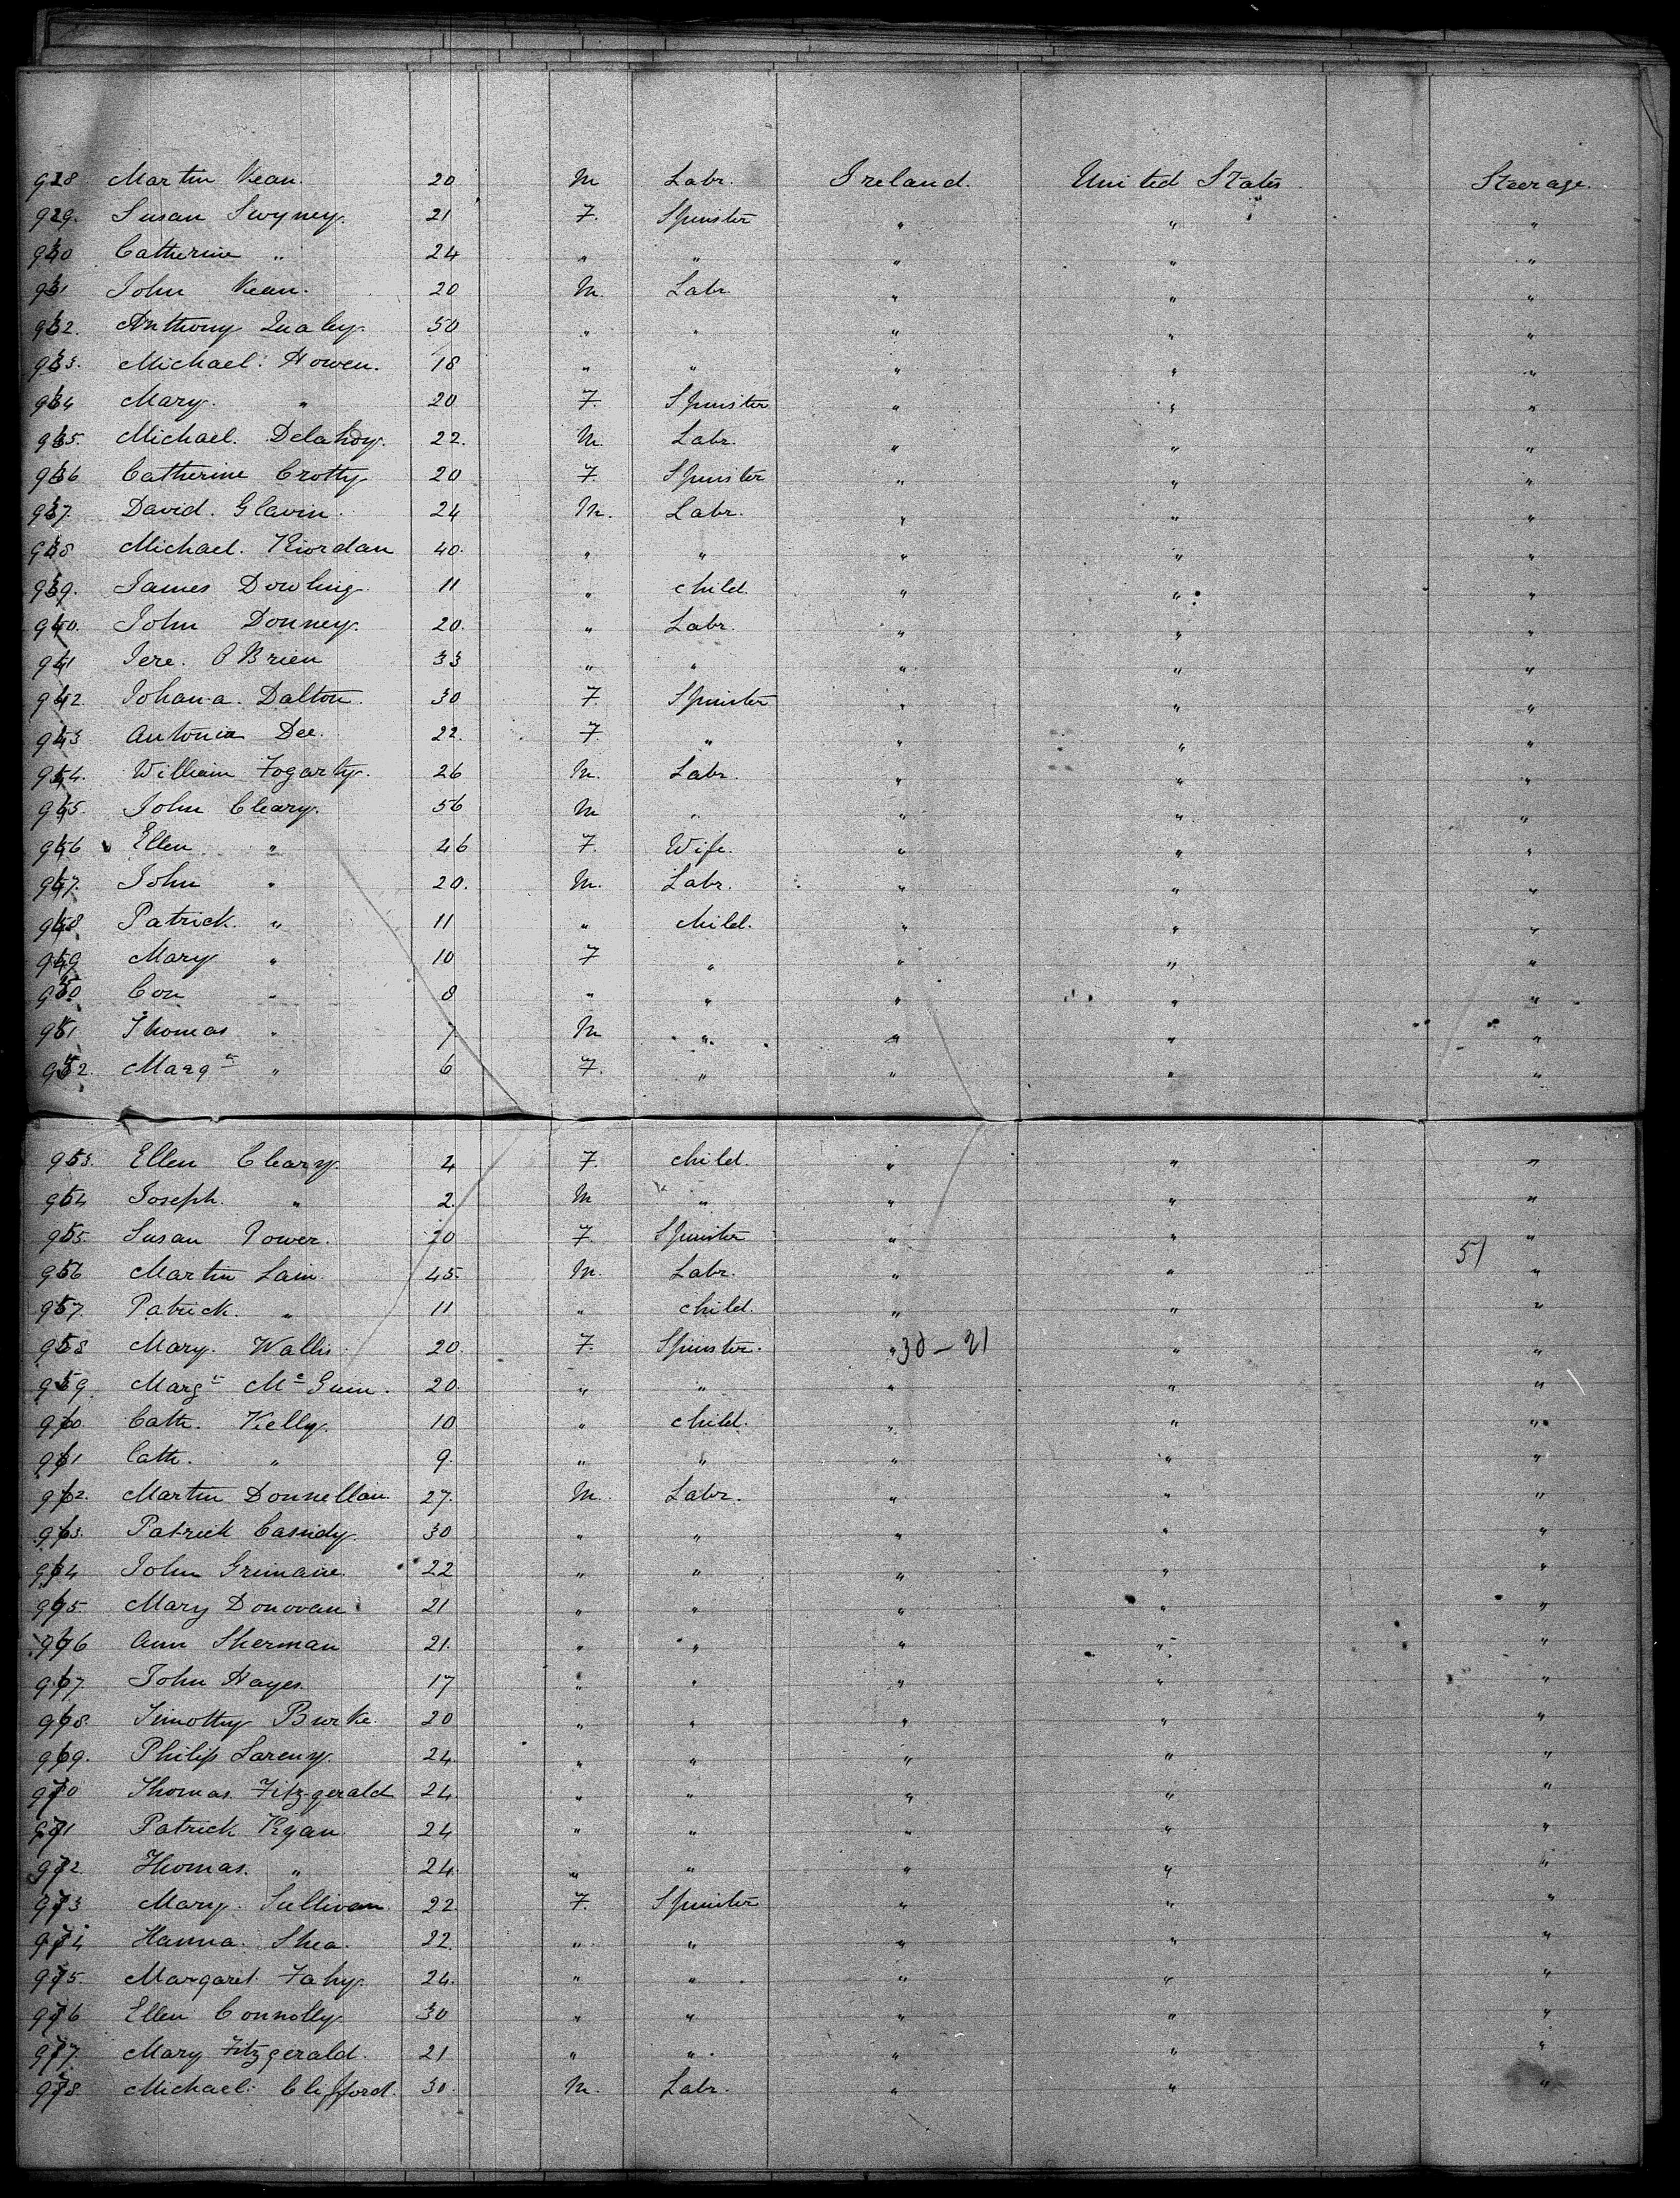 928 Martin Kean. 20 M Labr. Ireland. United States Steerage.
929. Susan Swyney. 21 F. Spinster " " "
930 Catherine " 24 " " " " "
931 John Kean. 20 M. Labr " " "
932. Anthony 50 " " " " "
933. Michael. Howen. 18 " " " " "
934 Mary. " 20 F. Spinster " " "
935. Michael. Delahoy. 22. M. Labr. " " "
936 Catherine Crotty 20 F. Spinster " " "
937. David. Glavin. 24 M. Labr. " " "
938 Michael. Riordan 40. " " " " "
939. James Dowling 11 " child. " " "
940. John Donney. 20. " Labr. " " "
941 Jere. O Brien 33 " " " " "
942. Johana. Dalton. 30 F. Spinster " " "
943 Antonia Dee. 22. F. " " " "
944. William Fogarty. 26 M. Labr. " " "
945. John Cleary. 56 M " " " "
946 Ellen " 46 F. Wife. " " "
947. John " 20. M. Labr. " " "
948 Patrick. " 11 " child. " " "
949 Mary " 10 F " " " "
950 Con " 8 " " " " "
951 Thomas " 7 M " " " "
952. Margt " 6 F. " " " "
953. Ellen Cleary. 4 F. child. " " "
954 Joseph. " 2. M " " " "
955. Susan Power. 20 F. Spinster " " "
51
956 Martin Lain. 45. M. Labr. " " "
957. Patrick. " 11 " child. " " "
958 Mary. Wallis. 20. F. Spinster. " 30 - 21 " "
959. Margt Mc Gum. 20. " " " " "
960. Cath. Kelly. 10 " child. " " "
961 Cath. " 9. " " " " "
962. Martin Donnellan. 27. M. Labr. " " "
963. Patrick Cassidy. 30 " " " " "
964 John 22 " " " " "
965. Mary Donovan 21 " " " " "
966 Ann Sherman 21. " " " " "
967. John Hayes. 17 " " " " "
968. Timothy Burke. 20 " " " " "
969. Philip 24. " " " " "
970 Thomas. Fitzgerald 24 " " " " "
971 Patrick Ryan. 24 " " " " "
972. Thomas. " 24. " " " " "
973 Mary. Sullivan. 22. F. Spinster " " "
974 Hanna. Shea. 22. " " " " "
975. Margaret. Fahy. 24. " " " " "
976 Ellen Connolly 30 " " " " "
977. Mary Fitzgerald. 21 " " " " "
978 Michael. Clifford. 30. M. Labr. " " "